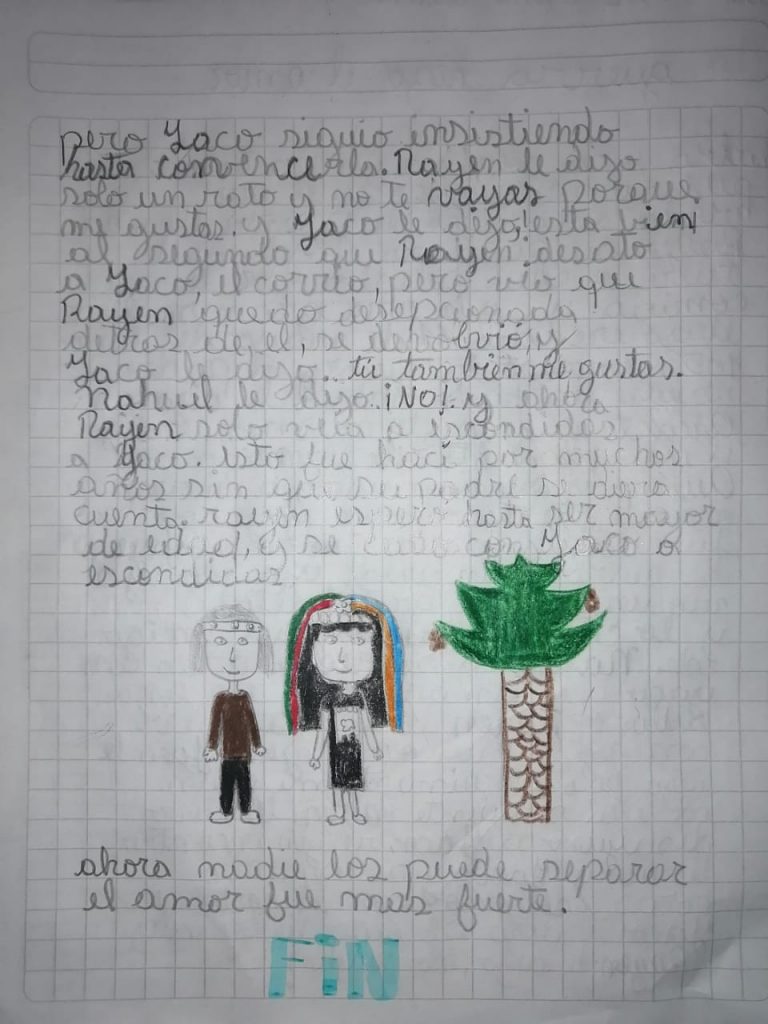 pero Yaco siguio insistiendo
hasta convencerla. Rayen le dijo
solo un rato y no te vayas porque
me gustas. y Yaco le dijo,¡esta bien
al segundo que Rayen desato
a Yaco, el corrio, pero vio que
Rayen quedo desepcionada
detras de el, se devolvió, y
Yaco le dijo... tú tambien me gustas.
Nahuel le dijo..¡NO!. y ahora
Rayen solo veia a escondidas
a Yaco. isto fue haci por muchos
años sin que su padre se diera
cuenta. rayen espero hasta ser mayor
de edad, y se caso con Yaco a
escondidas
ahora nadie los puede separar
el amor fue mas fuerte.
FiN